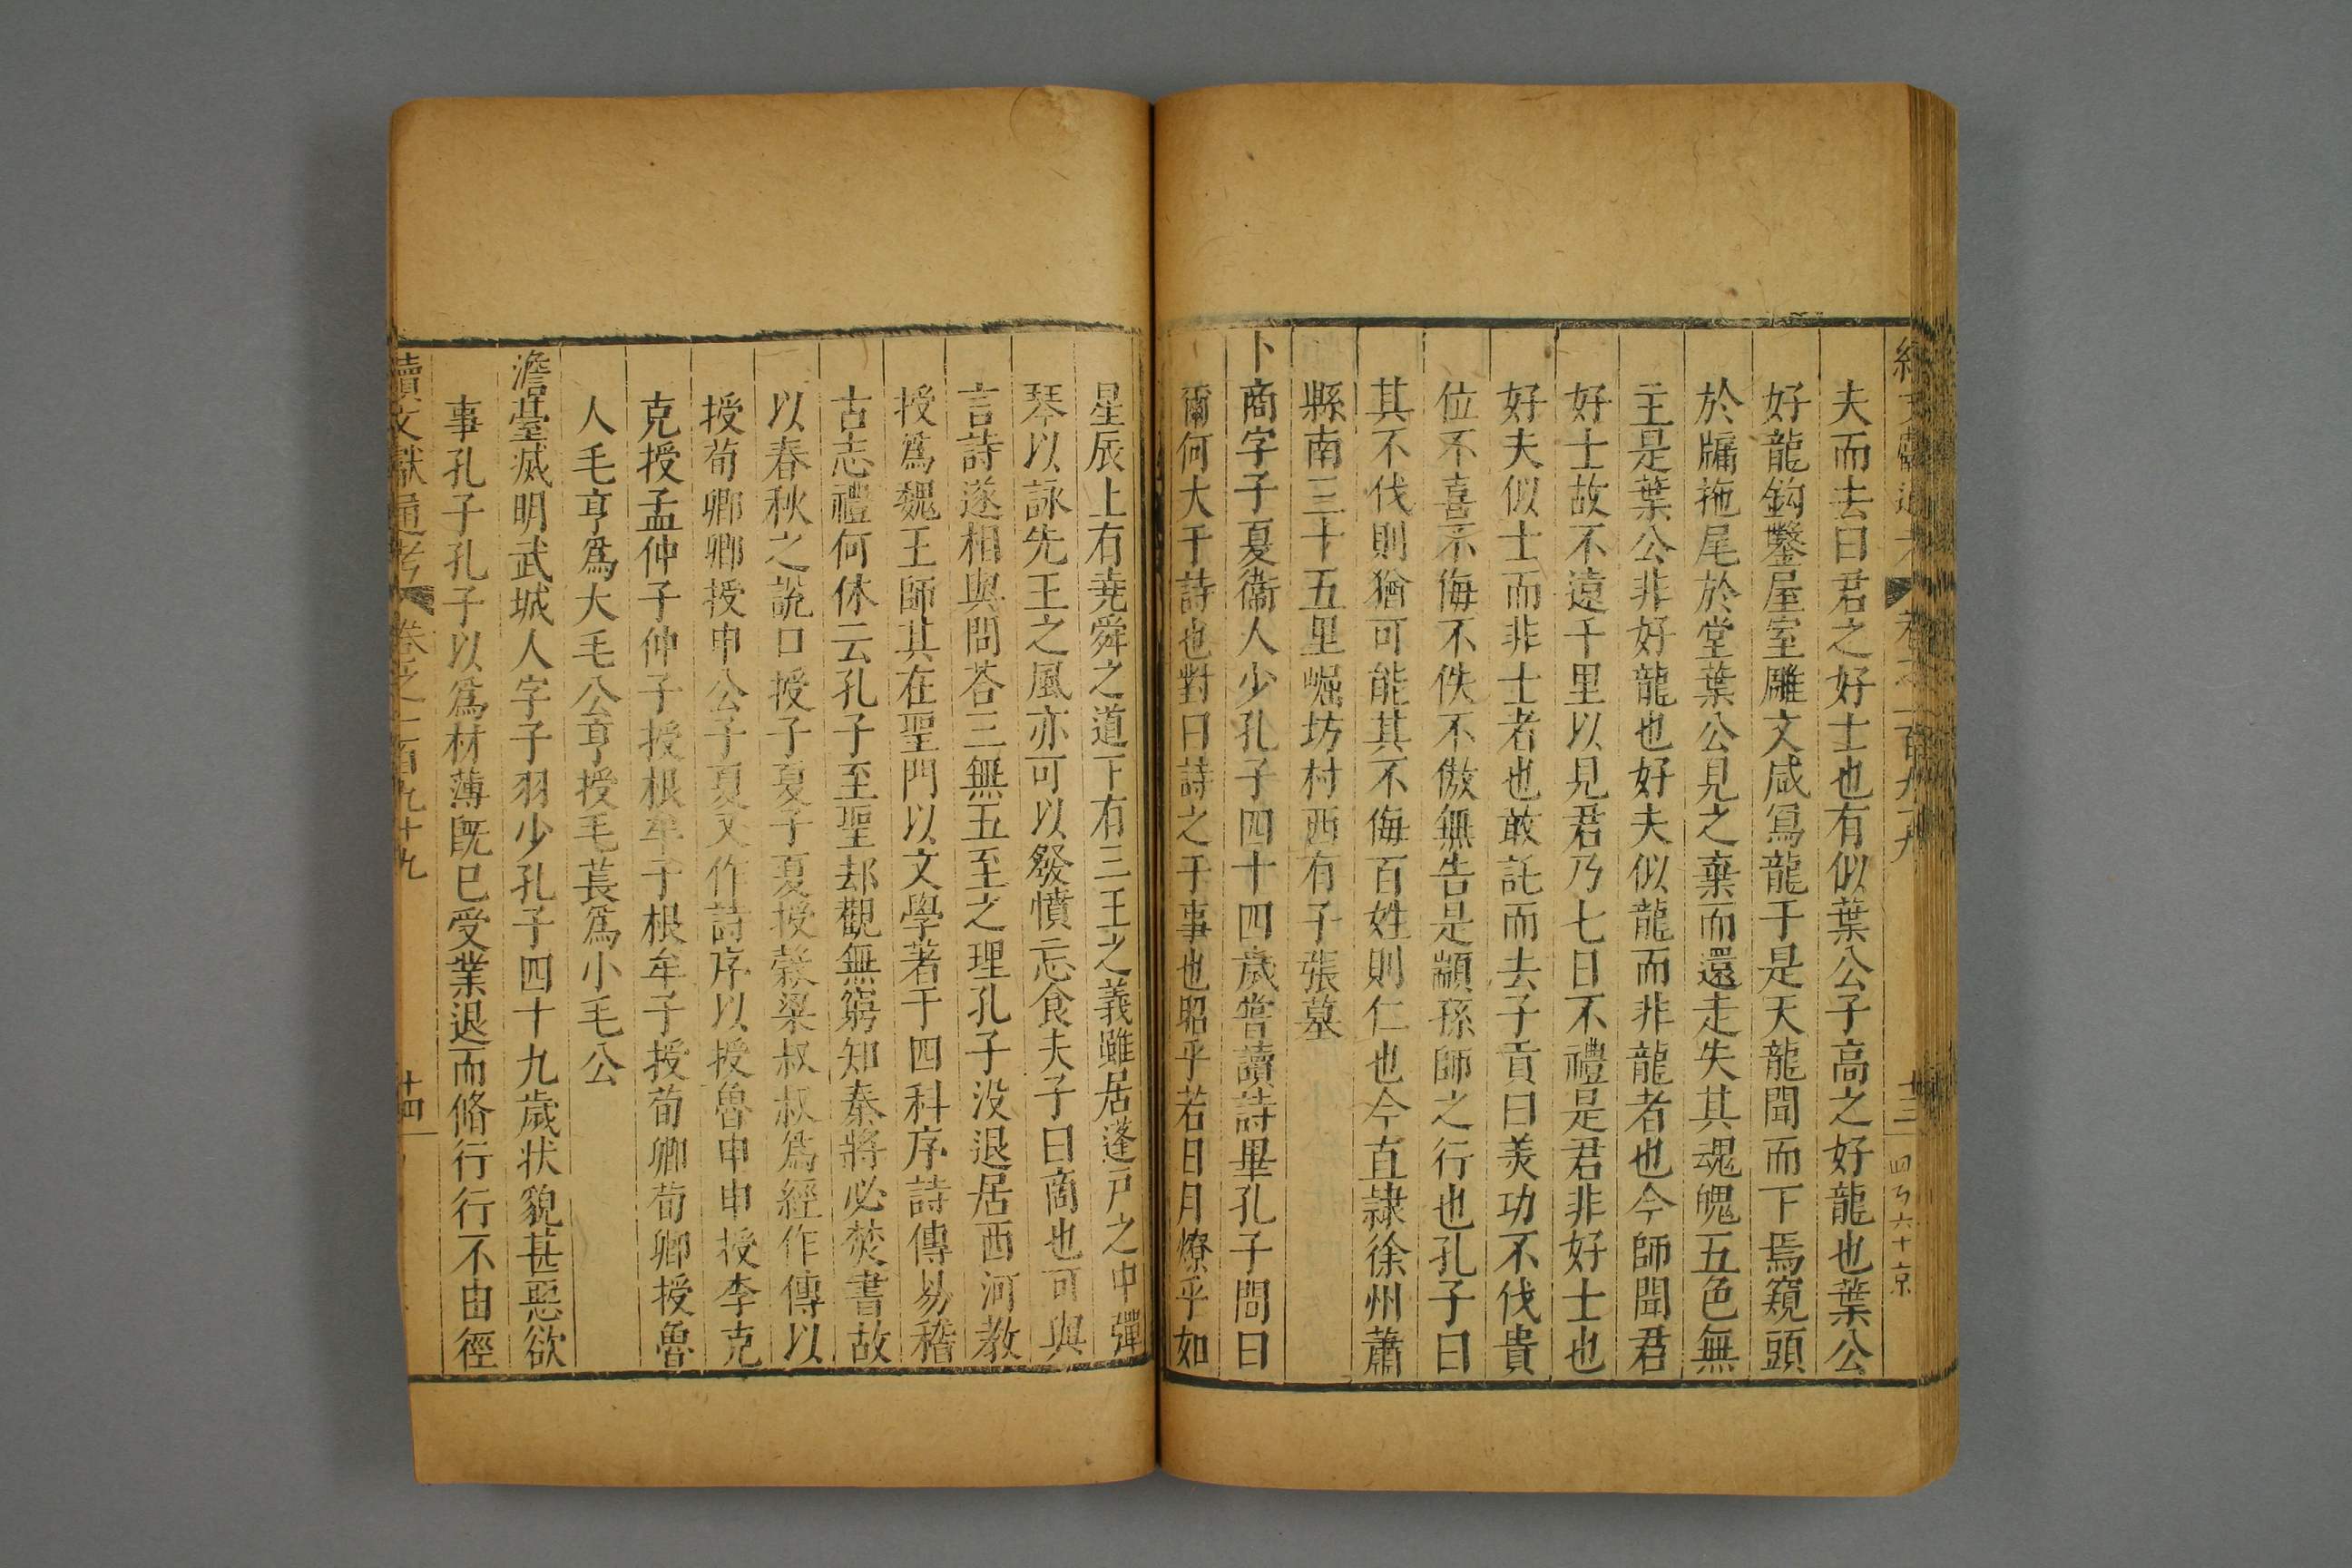 夫而去曰君之好士也有似葉公子高之好龍也葉公
好龍鈎鑿屋室雕文咸寫龍于是天龍聞而下焉窺頭
於牖拖尾於堂葉公見之棄而還走失其魂魄五色無
主是葉公非好龍也好夫似龍而非龍者也今師聞君
好士故不遠千里以見君乃七日不禮是君非好士也
好夫似士而非士者也敢託而去子貢曰美功不伐貴
位不喜不侮不佚不傲無告是顓孫師之行也孔子曰
其不伐則猶可能其不侮百姓則仁也今直隸徐州蕭
縣南三十五里崛坊村西有子張墓
卜商字子夏衞人少孔子四十四歲嘗讀詩畢孔子問曰
爾何大于詩也對曰詩之于事也昭乎若日月燎乎如
星辰上有堯舜之道下有三王之義雖居蓬戸之中彈
琴以詠先王之風亦可以發憤忘食夫子曰商也可與
言詩遂相與問荅三無五至之理孔子没退居西河教
授爲魏王師其在聖門以文學著于四科序詩傳易稽
古志禮何休云孔子至聖却觀無窮知秦將必焚書故
以春秋之說口授子夏子夏授榖梁叔叔爲經作傳以
授荀卿卿授申公子夏又作詩序以授魯申申授李克
克授孟仲子仲子授根牟子根牟子授荀卿荀卿授魯
人毛亨爲大毛公亨授毛萇爲小毛公
澹臺烕明武城人字子羽少孔子四十九歲状貌甚惡欲
事孔子孔子以爲材薄既已受業退而脩行行不由徑
續文獻通考 卷之一百九十九 十四